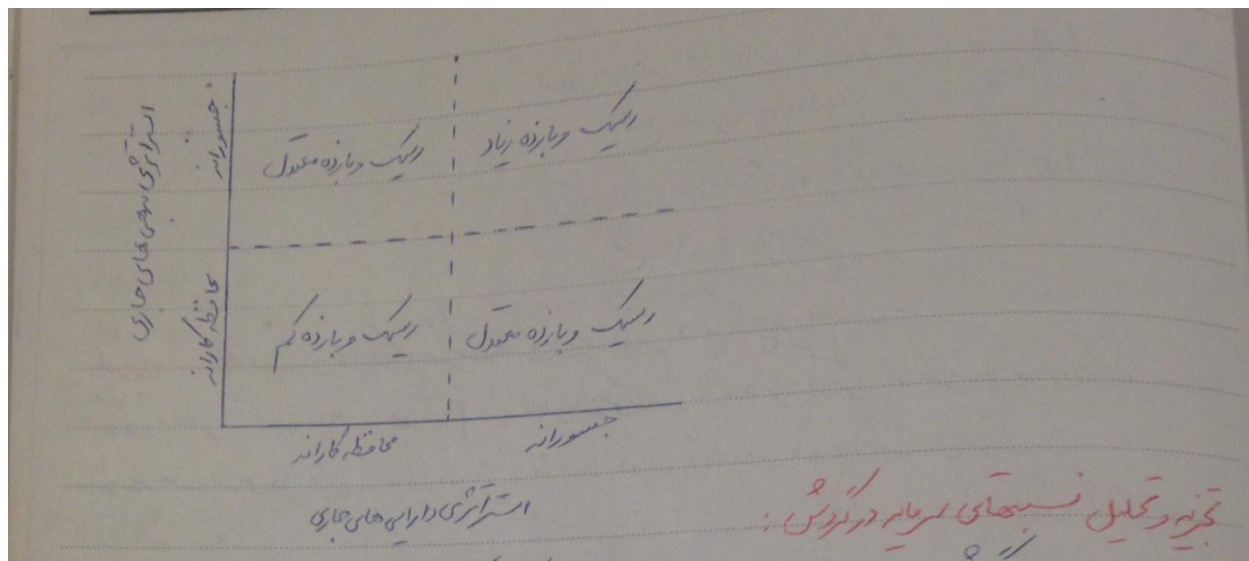 استراتژی بدهی های جاری
جسورانه
محافظه کارانه
ریسک و بازده معتدل
ریسک و بازده زیاد
ریسک و بازده کم
ریسک و بازده معتدل
محافظه کارانه
جسورانه
استراتژی دارایی های جاری
تجزیه و تحلیل نسبتهای سرمایه در گردش :